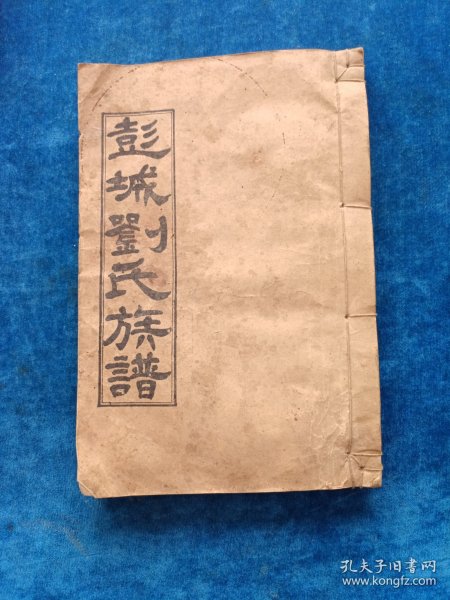 彭城劉氏族譜
孔夫子旧书网
www.kongfz.com